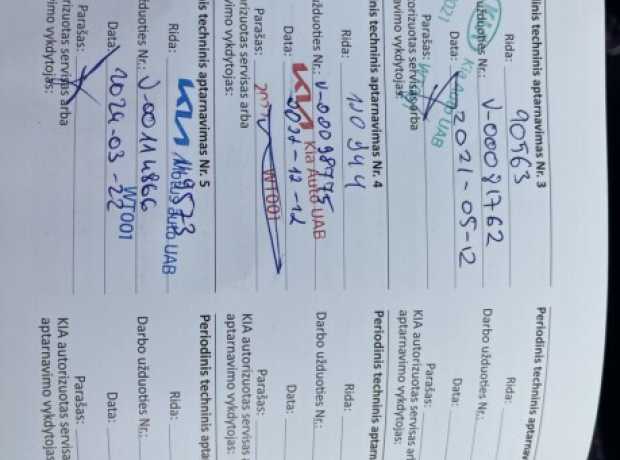 Periodinis techninis aptarnavimas Nr. 3
Rida: 90563
užduoties Nr.: V-00081762
Data: 2021-05-12
Kia Auto UAB
Parašas:
autorizuotas servisas arba
navimo vykdytojas:
nis techninis aptarnavimas Nr. 4
Rida:
užduoties Nr.: V-00098775
Kia Auto UAB
Data:
WT001
Parašas:
torizuotas servisas arba
vimo vykdytojas:
is techninis aptarnavimas Nr. 5
Rida:
Motus auto UAB
žduoties Nr.: V-00114866
Data: 2024-03-22
WT001
Parašas:
izuotas servisas arba
imo vykdytojas:
Periodinis techninis aptarnav
Rida:
Darbo užduoties Nr.:
Data:
Parašas:
KIA autorizuotas servisas ar
aptarnavimo vykdytojas:
Periodinis techninis aptarn
Rida:
Darbo užduoties Nr.:
Data:
Parašas:
KIA autorizuotas servisas a
aptarnavimo vykdytojas:
Periodinis techninis apta
Rida:
Darbo užduoties Nr.:
Data:
Parašas:
KIA autorizuotas servisa
aptarnavimo vykdytojas: